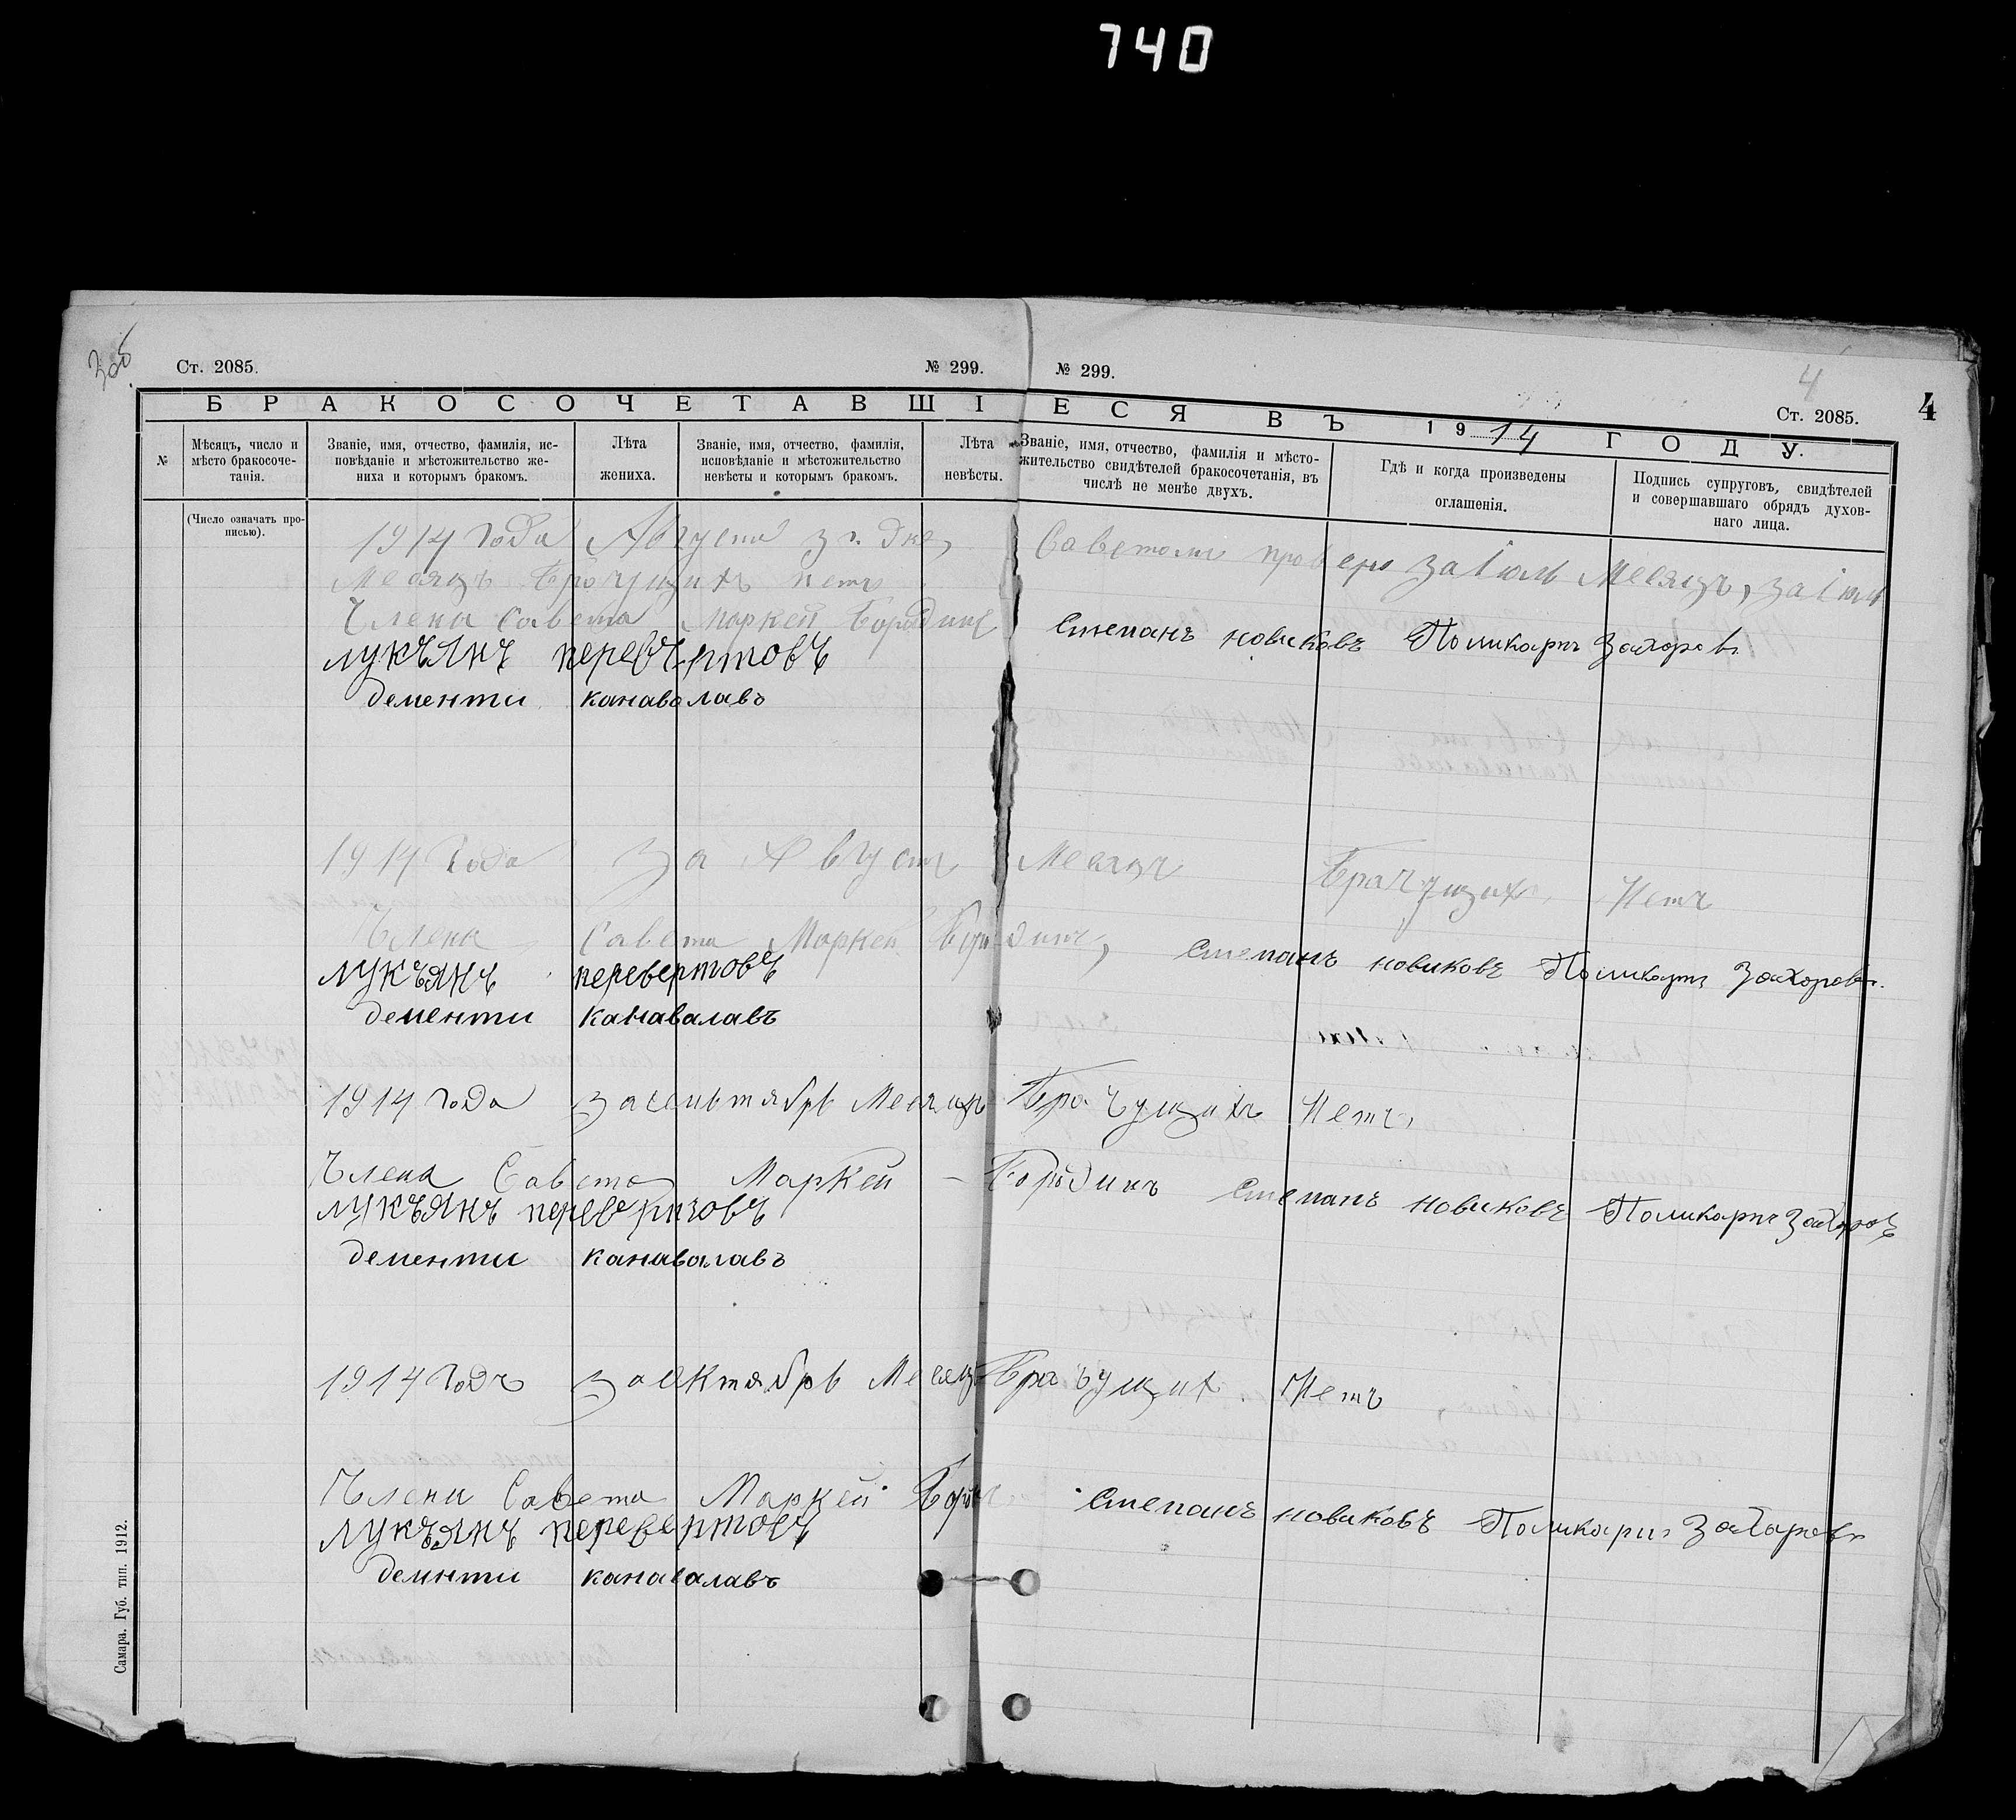 740
Ст. 2085.
№ 299.
№ 299.
4
Ст. 2085.
4
БРАКОСОЧЕТАВШІЕСЯ ВЪ 1914 ГОДУ.
№
Мѣсяцъ, число и мѣсто бракосоче-танія.
Званіе, имя, отчество, фамилія, ис-повѣданіе и мѣстожительство же-ниха и которымъ бракомъ.
Лѣта жениха.
Званіе, имя, отчество, фамилія, исповѣданіе и мѣстожительство невѣсты и которымъ бракомъ.
Лѣта невѣсты.
Званіе, имя, отчество, фамилія и мѣсто-жительство свидѣтелей бракосочетанія, въ числѣ не менѣе двухъ.
Гдѣ и когда произведены оглашенія.
Подпись супруговъ, свидѣтелей и совершавшаго обрядъ духов-наго лица.
(Число означать про-писью).
1914 года Августа 3 г. дня, Саветом провере за Іюль Месяцъ, за Іюл
Месяцъ Брачущихъ нетъ
Члена Савета Маркей Бородинъ Степанъ новиковъ Поликарпъ Захаровъ
лукъянъ перевертовъ
дементи канаваловъ
1914 Года За Август Месяцъ Брачущихъ Нетъ
Члена Савета Маркей Бородинъ, Степанъ новиковъ Поликарпъ Захоровъ.
лукъянъ перевертовъ
дементи канавалавъ
1914 года за сентябрь Месяцъ Брачущихъ Нетъ,
Члена Савета Маркей – Бородинъ Степанъ новиковъ Поликарпъ Захаровъ
лукъянъ перевертовъ
дементи канавалавъ
1914 Годъ за октябрь Месяцъ Брачущих Нетъ
Члени Савета Маркей Боро Степанъ новиковъ Поликарпъ Захаровъ
лукъянъ перевертовъ
дементи канавалавъ
Самара. Губ. тип. 1912.